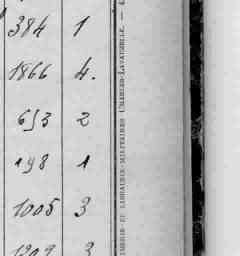 384 1
1866 4.
653 2
198 1
1005 3
1209 3
IMPRIMERIE ET LIBRAIRIE MILITAIRES CHARLES-LAVAUZELLE. —